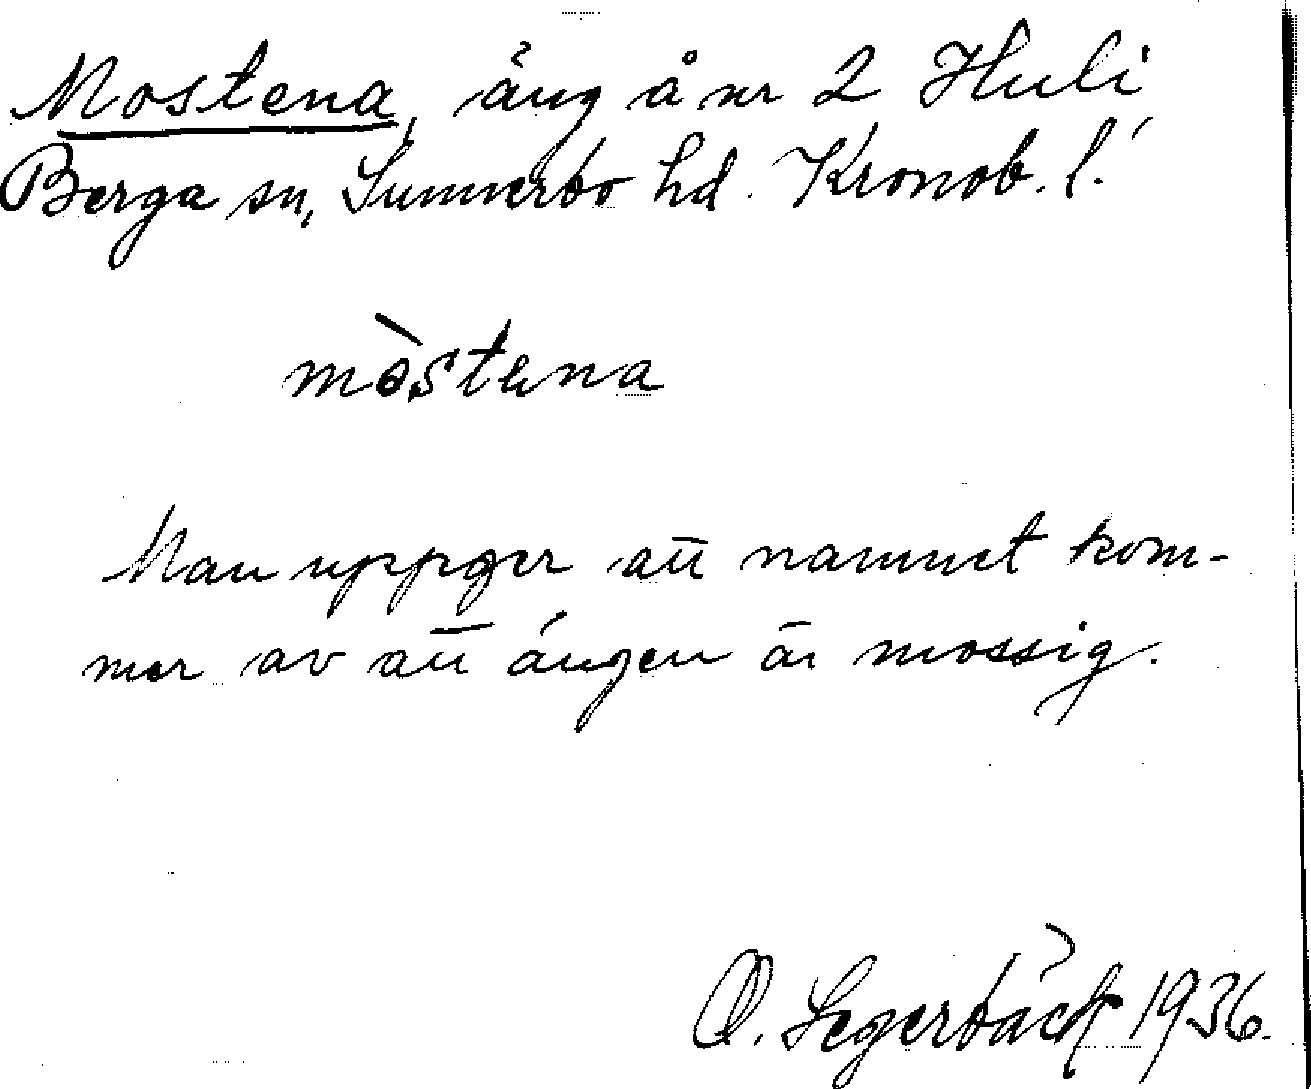 Mostena, äng å nr 2 Huli
Berga sn, Sunnerbo hd. Kronob. l.
mòstena
Man uppger att namnet kom-
mer av att ängen är mossig.
O. Segerbäck 1936.